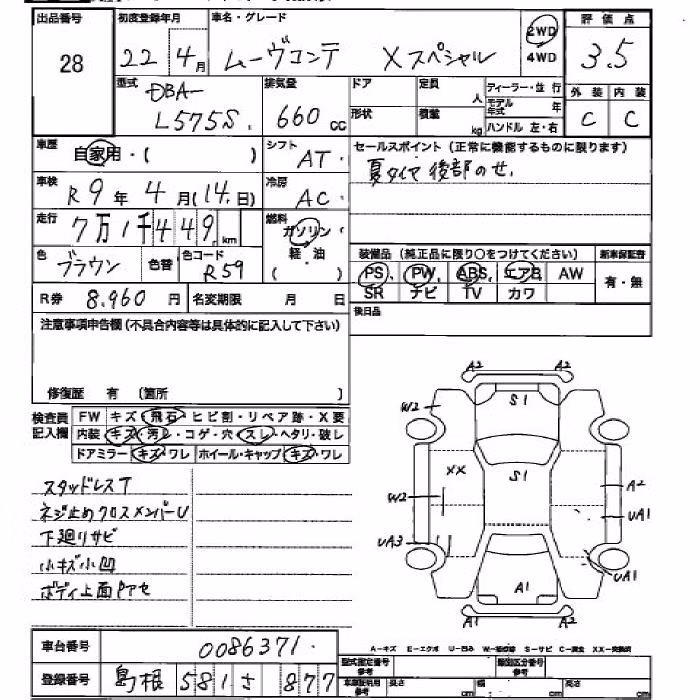 出品番号 初度登録年月 車名・グレード 評価点
28 22年4月 ムーヴコンテ Xスペシャル 2WD 4WD 3.5
型式 DBA- L575S. 排気量 660cc
ドア 定員 人 ディーラー・並行
形状 積載 kg モデル年式 年 ハンドル 左・右
外装 内装
C C
車歴 自家用・( ) シフト AT.
セールスポイント(正常に機能するものに限ります)
夏タイヤ後部のせ.
車検 R9年4月(14.日) 冷房 AC.
走行 7万1千449.km 燃料 ガソリン・軽油
色 ブラウン 色替 色コード R59
装備品(純正品に限り○をつけてください) 新車保証書
PS PW ABS エアB AW 有・無
SR ナビ TV カワ
R券 8.960円 名変期限 月 日
後日品
注意事項申告欄(不具合内容等は具体的に記入して下さい)
修復歴 有 〔箇所 〕
検査員記入欄 FW キズ・飛石・ヒビ割・リペア跡・X要
内装 キズ・汚レ・コゲ・穴・スレ・ヘタリ・破レ
ドアミラー キズ・ワレ ホイール・キャップ キズ・ワレ
スタッドレスT
ネジ止めクロスメンバーU
下廻りサビ
小キズ小凹
ボディ上面Pアセ
A2 A2
W2 S1
XX S1
W2 A2
UA1
UA3
UA1
A1
A1 A2
A-キズ E-エクボ U-凹み W-補修跡 S-サビ C-腐食 XX-交換済
車台番号 0086371.
登録番号 島根 581 さ 877
型式指定番号 参考 類別区分番号 参考
車庫証明用 参考 長さ cm 幅 cm 高さ cm